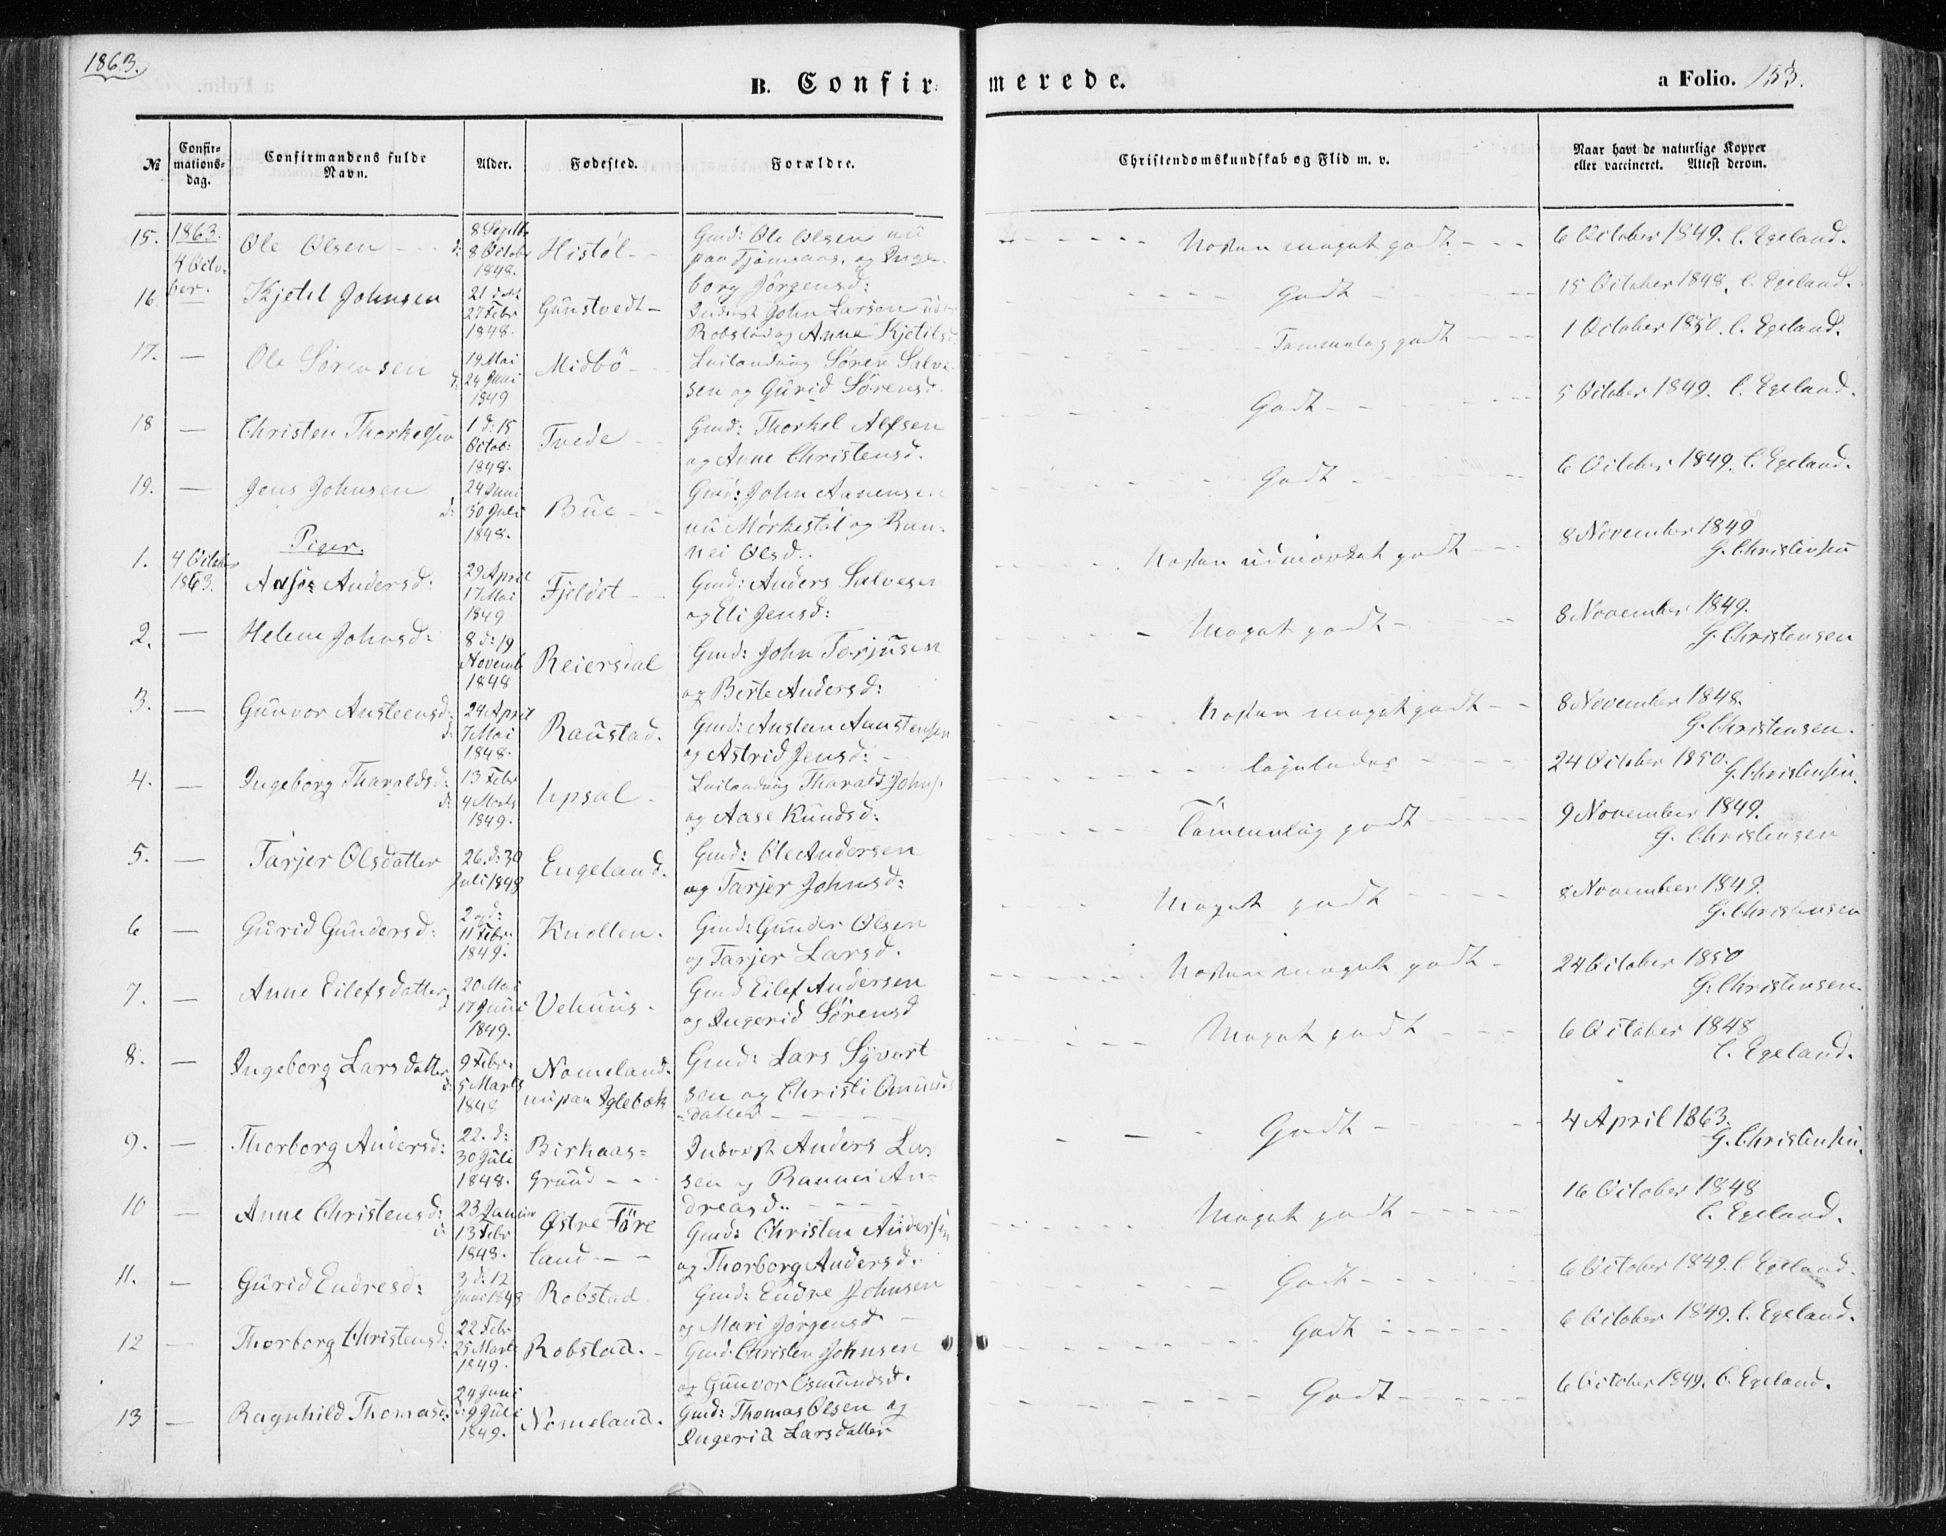 1863.
B. Confirmerede.
a Folio. 153.
№ Confir-mations-dag. Confirmandens fulde Navn. Alder. Fødested. Forældre. Christendomskundskab og Flid m. v. Naar havt de naturlige Kopper eller vaccineret. Attest derom.
15. 1863. 4 October. Ole Olsen 8 Septb d: 8 Octob 1848. Histøl Gmd: Ole Olsen nu paa Tjomsaas, og Ingeborg Jørgensd: Næsten meget godt 6 October 1849. C. Egeland.
16 Kjetil Johnsen 21 27 Febr 1848. Gunstvedt John Larsen Robstad og Anne Kjetilsd Godt 15 October 1848. C. Egeland.
17. Ole Sørensen 19 Mai d: 24 Juni 1849 Midbö Søren Salvesen og Gurid Sørensd. Temmelig godt 1 October 1850. C. Egeland.
18 Christen Thorkelsen 1 d: 15 Octob: 1848. Tvede Gmd: Thorkel Alfsen og Anne Christensd. Godt 5 October 1849. C. Egeland.
19. Jens Johnsen 24 Juni d: 30 Juli 1848. Bue Gmd: John Aanensen nu Mörkestøl og Rannei Olsd. Godt 6 October 1849. C. Egeland.
Piger.
1. 4 Octob 1863. Andersd: 29 April 17 Mai 1849 Fjeldet Gmd: Anders Salvesen og Eli Jensd: Næsten udmærket godt 8 November 1849 G. Christensen
2. Helene Johnsd: 8 d: 19 Novemb 1848 Reiersdal Gmd: John Tarjusen og Birte Andersd: Meget godt 8 November 1849. G. Christensen
3. Gunvor Austeensd: 24 April d: 7 Mai 1848. Raustad. Gmd: Austen Aanstensen og Astrid Jensd: Næsten meget godt 8 November 1848. G. Christensen.
4. Ingeborg Tharaldsd: 13 Febr d: 4 Marts 1849. Upsal Tharald Johns. og Aase Knudsd: ligeledes 24 October 1850. G. Christensen.
5. Tarjer Olsdatter 26. d: 30 Juli 1848 Engeland. Gmd: Ole Andersen og Tarjer Johnsd: Temmelig godt 9 November 1849. G. Christensen
6 Gurid Gundersd: 2 d: 11 Febr. 1849. Knolten. Gmd: Gunder Olsen og Tarjer Larsd. Meget godt 8 November 1849. G. Christensen
7. Anne Eilefsdatter 20 Mai d 17 Juni 1849. Vehuus. Gmd Eilef Andersen og Ingerid Sørensd Næsten meget godt 24 October 1850 G. Christensen.
8. Ingeborg Larsdatter 9 Febr. d: 5 Marts 1848 Nomeland. nu paa Iglebæk Gmd: Lars Syvertsen og Christi datter Meget godt 6 October 1848 C. Egeland.
9. Thorborg Andersd: 22. d: 30 Juli 1848. Birkaas=grund Anders Larsen og Rannei Andreasd. Godt 4 April 1863. G. Christensen.
10 Anne Christensd: 23 Januar d: 13 Febr 1848. Østre Føreland Gmd: Christen Andersen og Thorborg Andersd. Meget godt 16 October 1848 C. Egeland.
11. Gurid Endresd: 3 d: 12 Juni 1848 Robstad Gmd: Endre Johnsen og Mari Jørgensd Godt 6 October 1849. C. Egeland.
12 Thorborg Christensd: 22 Febr 25 Marts 1849. Robstad. Gmd: Christen Johnsen og Gunvor Osmundsd. Godt 6 October 1849. C. Egeland.
13 Ragnhild Thomasd: 24 Juni d: 9 Juli 1849. Nomeland. Gmd: Thomas Olsen og Ingerid Larsdatter Godt 6 October 1849. C. Egeland.